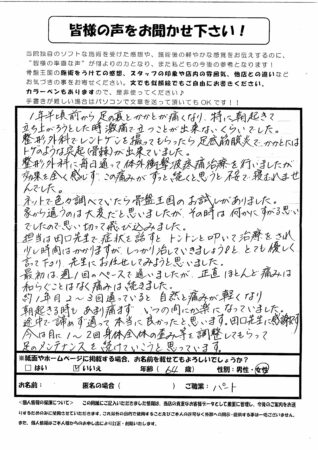 皆様の声をお聞かせ下さい!
当院独自のソフトな施術を受けた感想や、施術後の鮮やかな感覚をお伝えするのに、
"皆様の率直な声" が何よりの力となり、また私どもの今後の参考となります!
骨盤王国の施術をうけての感想、スタッフの印象や店内の雰囲気、他店との違いなど
お気づきの事をお書きください。文でも似顔絵でもご自由にお書きください。
カラーペンもありますので、是非使ってください!
手書きが難しい場合はパソコンで文章を送って頂いてもOKです!!
1年半く頃前から足の裏とかかとが痛くなり、特に朝起きて
立ち上がろうとした時激痛で立つことが出来ないくらいでした。
整形外科でレントゲンを撮ってもらったら足底筋膜炎で、かかとには
トゲのような突起(骨棘)が出来ていました。
整形外科に毎日通って体外衝撃波疼痛治療を行いましたが
効果を全く感じず、この痛みがずっと続くと思うと不安で寝れませ
んでした。
ネットで色々調べていたら骨盤王国のお話しがありました。
家から通うのは大変だと思いましたが、その時は何かにすがる思い
でしたので思い切って飛び込みました。
担当は田口先生で症状を話すとトントンと叩いて治療をされ
少し時間はかかりますが、しっかり治していきましょうねととても優しく
言って下さり先生にお任せしてみようと思いました。
最初は週1回のペースで通いましたが、正直ほとんど痛みは
和らぐことはなく痛みは続きました。
約1年月2〜3回通っていると自然と痛みが軽くなり
朝起きる時もあまり痛まず いつの間にか楽になっていました。
途中で諦めず通って本当に良かったと思います。田口先生に感謝です
今は月に1〜2回身体全体の歪み等を調整してもらって
足のメンテナンスを続けていこうと思っています。
※紙面やホームページに掲載する場合、お名前を載せてもよろしいでしょうか?
はい いいえ 年齢( 64 歳) 性別:男性・女性
お名前: 匿名の場合( ) ご職業: パート
<個人情報の保護について> この用紙にご記入いただきました情報は、当店の貴重なお客様データとして厳重に管理し、今後のご案内をお送り
するためのみに使わせていただきます。これ以外の目的で使用すること及びご本人の許可なく外部への開示・提供する事は一切ございません。
また、個人情報はご本人様からのお申し出により訂正・お削除いたします。